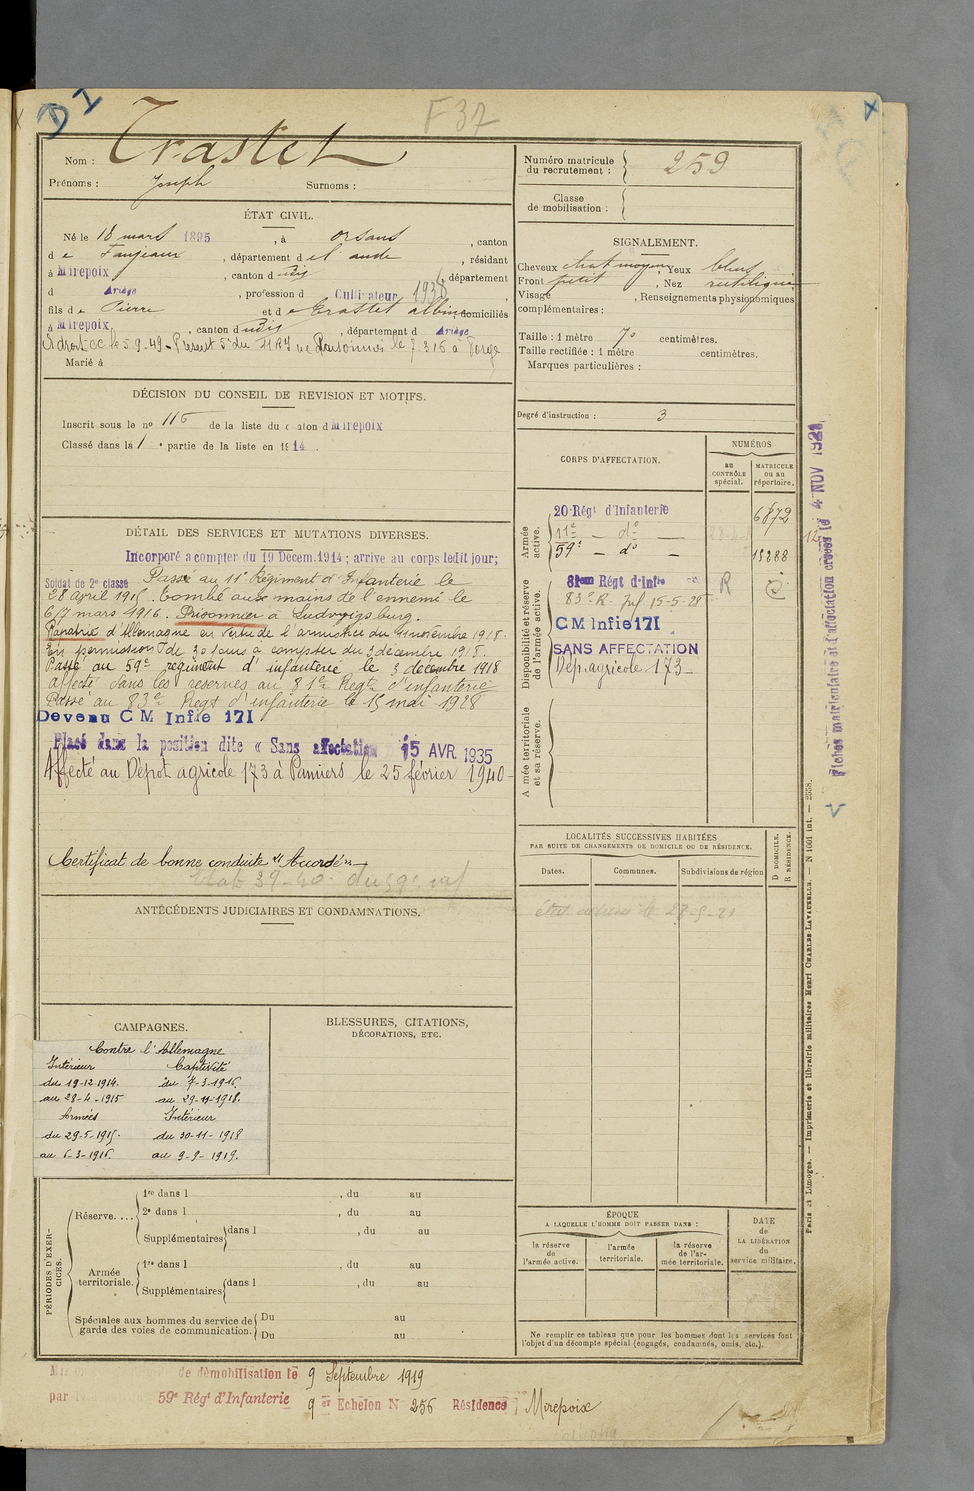 D I
F 37
Nom : Trastet
Prénoms : Joseph Surnoms :
ÉTAT CIVIL.
Né le 18 mars 1895, à Orsans, canton
de Fanjeaux, département de l'aude, résidant
à Mirepoix, canton dudis, département
d Ariège, profession d Cultivateur 1938
fils de Pierre et de Trastet albine domiciliés
à Mirepoix, canton dudis, département d Ariège
Marié à
DÉCISION DU CONSEIL DE REVISION ET MOTIFS.
Inscrit sous le no 116 de la liste du canton d Mirepoix
Classé dans la 1e partie de la liste en 1914.
DÉTAIL DES SERVICES ET MUTATIONS DIVERSES.
Incorporé a compter du 19 Décem. 1914 ; arrive au corps ledit jour;
Soldat de 2e classe Passé au 11e Régiment d'Infanterie le
28 avril 1915. Tombé aux mains de l'ennemi le
6/7 mars 1916. Prisonnier à Ludwigsburg.
Rapatrié d'Allemagne en vertu de l'armistice du 11 novembre 1918.
En permission de 30 jours à compter du 3 décembre 1918.
Passé au 59e régiment d'infanterie le 3 décembre 1918
Affecté dans les réserves au 81e Regt d'infanterie
Passé au 83e Regt d'infanterie le 15 mai 1928
Devenu C M Infie 17I
Placé dans la position dite « Sans affectation 15 AVR. 1935
Affecté au Dépot agricole 173 à Pamiers le 25 février 1940
Certificat de bonne conduite "Accordé"
ANTÉCÉDENTS JUDICIAIRES ET CONDAMNATIONS.
CAMPAGNES.
Contre l'Allemagne
Intérieur Captivité
du 19-12-1914. du 7-3-1916.
au 28-4-1915 au 29-11-1918.
Armées Intérieur
du 29-5-1915. du 30-11-1918
au 6-3-1916. au 9-9-1919.
BLESSURES, CITATIONS,
DÉCORATIONS, ETC.
PÉRIODES D'EXERCICES.
Réserve....
1re dans l , du au
2e dans l , du au
Supplémentaires dans l , du au
Armée territoriale.
1re dans l , du au
Supplémentaires dans l , du au
Spéciales aux hommes du service de garde des voies de communication.
Du au
Du au
Numéro matricule du recrutement : 259
Classe de mobilisation :
SIGNALEMENT.
Cheveux chat moyen, Yeux bleus
Front petit, Nez rectiligne
Visage , Renseignements physionomiques
complémentaires :
Taille : 1 mètre 70 centimètres.
Taille rectifiée : 1 mètre centimètres.
Marques particulières :
Degré d'instruction : 3
CORPS D'AFFECTATION.
NUMÉROS
au CONTRÔLE spécial.
MATRICULE ou au répertoire.
Armée active.
20 Régt d'Infanterie 6872
11e — do —
59e — do — 18288
Disponibilité et réserve de l'armée active.
81eme Régt d'Infie R
83e R. Inf 15-5-28
C M Infie 17I
SANS AFFECTATION
Dép. agricole 173
Armée territoriale et sa réserve.
LOCALITÉS SUCCESSIVES HABITÉES
PAR SUITE DE CHANGEMENTS DE DOMICILE OU DE RÉSIDENCE.
Dates. Communes. Subdivisions de région
D DOMICILE.
R RÉSIDENCE.
ÉPOQUE
A LAQUELLE L'HOMME DOIT PASSER DANS :
la réserve de l'armée active.
l'armée territoriale.
la réserve de l'armée territoriale.
DATE de LA LIBÉRATION du service militaire.
Ne remplir ce tableau que pour les hommes dont les services font
l'objet d'un décompte spécial (engagés, condamnés, omis, etc.).
Fiches matriculaire et d'affectation créées le 4 NOV 1921
Paris et Limoges. — Imprimerie et librairie militaires Henri CHARLES-LAVAUZELLE. — N 1001 int. — 2558.
de démobilisation le 9 Septembre 1919
par 59e Régt d'Infanterie 9 er Echelon No 256 Résidence Mirepoix